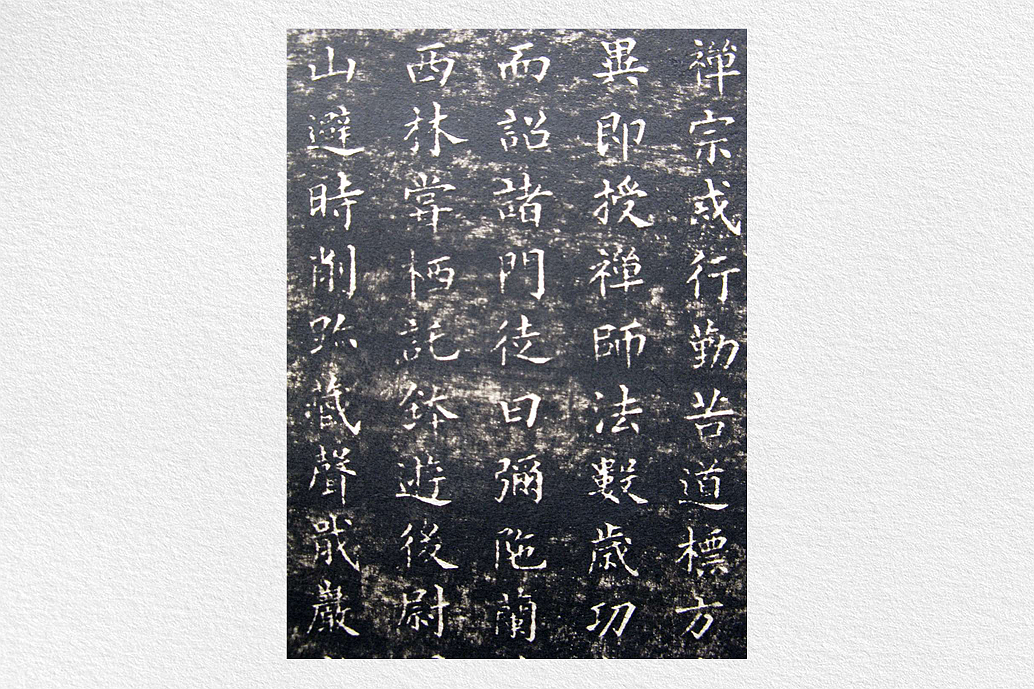 禪宗戒行勤苦道標方
異即授禪師法數歲功
而詔諸門徒曰彌陁蘭
西林當栖託鉢遊後尉
山避時削跡藏聲戢巖